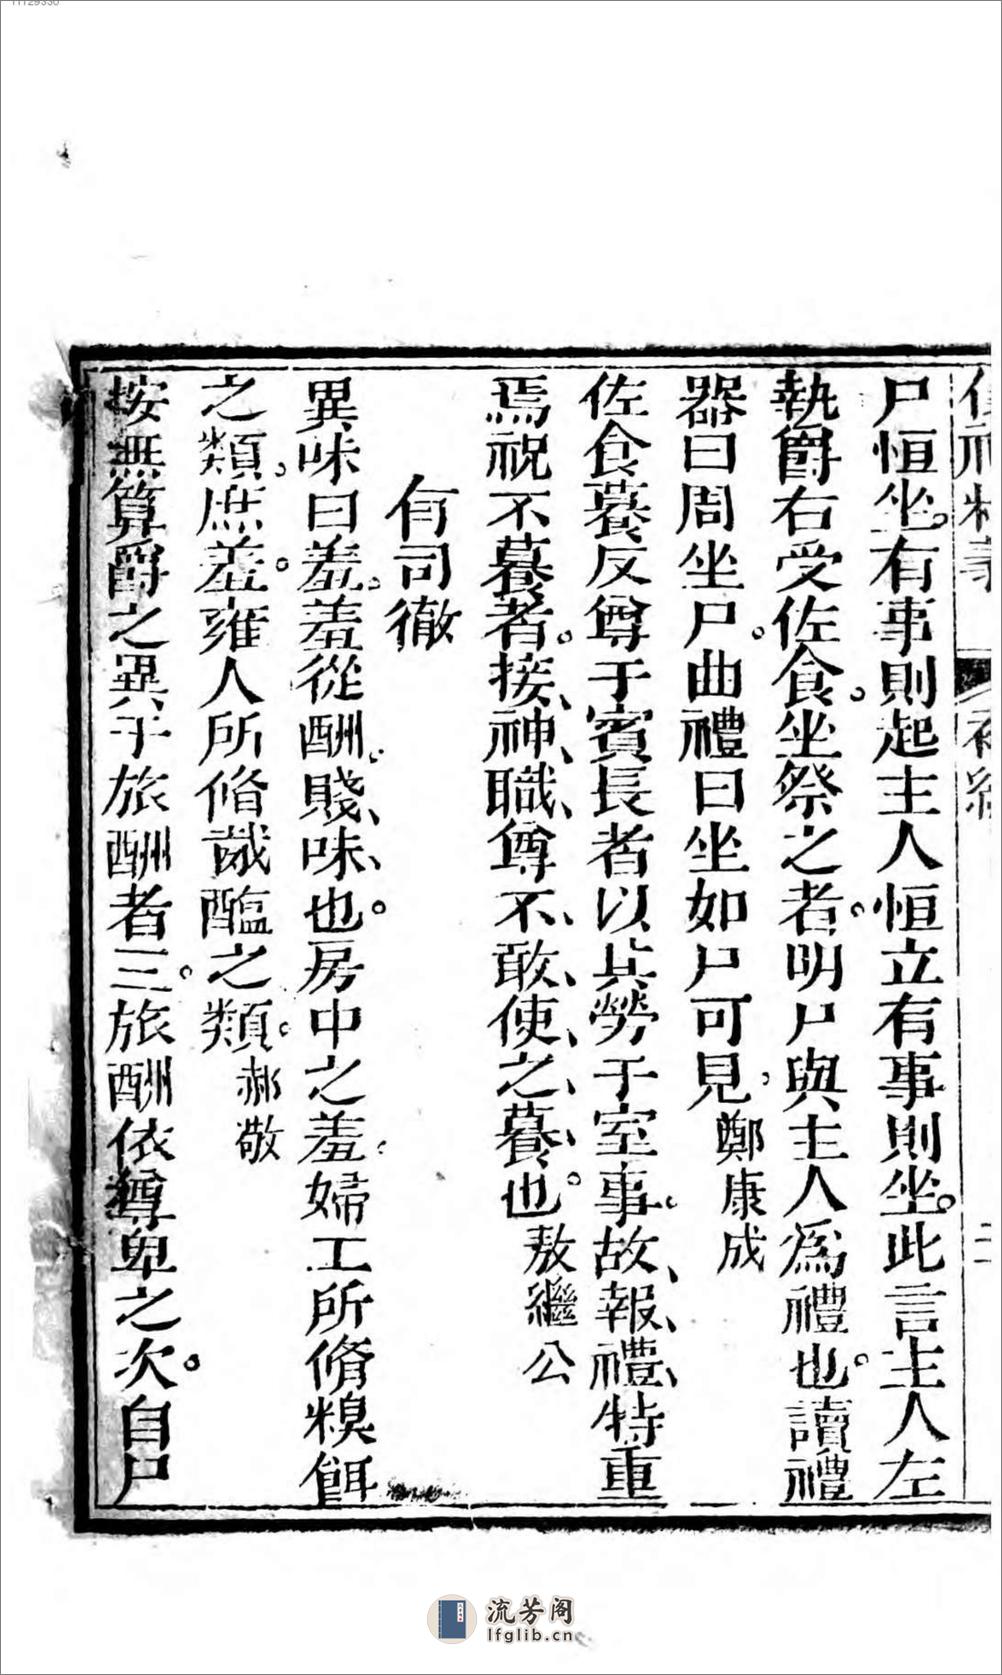 尸恒坐。有事則起主人恒立有事則坐。此言主人左
執爵右受佐食。坐祭之者。明尸與主人爲禮也。讀禮
器曰周坐尸。曲禮曰坐如尸可見、鄭康成
佐食養反尊于賓長者以其勞于室事。故、報、禮、特重
焉祝不養者。接、神、職、尊、不、敢、使、之、養、也。敖繼公
有司徹
異味曰羞。羞從酬。賤、味、也。房中之羞。婦工所脩糗餌
之類。庶羞。雍人所脩胾醢之類。郝敬
按無算爵之異于旅酬者三。旅酬依尊卑之次。自尸
流芳阁
lfglib.cn